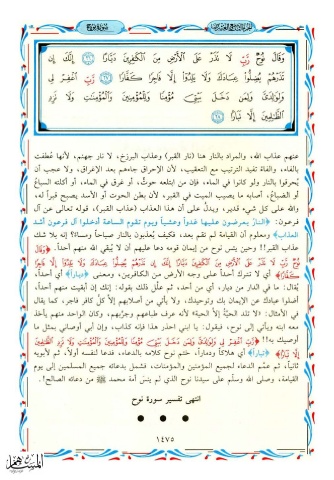 سورة نوح
الجزء التاسع والعشرون
وَقَالَ نُوحٌ رَّبِّ لَا تَذَرْ عَلَى الْأَرْضِ مِنَ الْكَافِرِينَ دَيَّارًا ٢٦ إِنَّكَ إِن
تَذَرْهُمْ يُضِلُّوا عِبَادَكَ وَلَا يَلِدُوا إِلَّا فَاجِرًا كَفَّارًا ٢٧ رَّبِّ اغْفِرْ لِي
وَلِوَالِدَيَّ وَلِمَن دَخَلَ بَيْتِيَ مُؤْمِنًا وَلِلْمُؤْمِنِينَ وَالْمُؤْمِنَاتِ وَلَا تَزِدِ
الظَّالِمِينَ إِلَّا تَبَارًا ٢٨
عنهم عذاب الله، والمراد بالنار هنا (نار القبر) وعذاب البرزخ، لا نار جهنم، لأنها عُطفت
بالفاء، والفاء تفيد الترتيب مع التعقيب، لأن الإحراق جاءهم بعد الإغراق، ولا عجب أن
يُحرقوا بالنار ولو كانوا في الماء، فإن من ابتلعه حوتٌ، أو غرق في الماء، أو أكلته السباعُ
أو الضباعُ، أصابه ما يصيب الميت في القبر، لأن بطن الحوت أو الأسد يصبح قبراً له،
والله على كل شيء قدير، ويدلُّ على أن هذا العذاب (عذاب القبر)، قوله تعالى عن آل
فرعون: ﴿النارُ يعرضون عليها غدواً وعشياً ويوم تقوم الساعة أدخلوا آل فرعون أشد
العذاب﴾ ومعلوم أن القيامة لم تقم بعد، فكيف يُعذَّبون بالنار صباحاً ومساءً؟ إنه بلا شكٍّ
عذاب القبر!! وحين يئس نوح من إيمان قومه دعا عليهم أن لا يُبقي الله منهم أحداً. ﴿وَقَالَ
نُوحٌ رَّبِّ لَا تَذَرْ عَلَى الْأَرْضِ مِنَ الْكَافِرِينَ دَيَّارًا إِنَّكَ إِن تَذَرْهُمْ يُضِلُّوا عِبَادَكَ وَلَا يَلِدُوا إِلَّا فَاجِرًا
كَفَّارًا﴾ أي لا تترك أحداً على وجه الأرض من الكافرين، ومعنى ﴿دياراً﴾ أي أحداً،
يُقال: ما في الدار من ديار، أي من أحد، ثم علَّل ذلك بقوله: إنك إن أبقيت منهم أحداً،
أضلوا عبادك عن الإيمان بك وتوحيدك، ولا يأتي من أصلابهم إلا كلُّ كافر فاجر، كما يقال
في الأمثال: «لا تلد الحيَّةُ إلا الحيَّة» لأنه عرف طباعهم وجرَّبهم، وكان الواحد منهم يأخذ
معه ابنه ويأتي إلى نوح، فيقول: يا ابني احذر هذا فإنه كذاب، وإن أبي أوصاني بمثل ما
أوصيك به!! ﴿رَّبِّ اغْفِرْ لِي وَلِوَالِدَيَّ وَلِمَن دَخَلَ بَيْتِيَ مُؤْمِنًا وَلِلْمُؤْمِنِينَ وَالْمُؤْمِنَاتِ وَلَا تَزِدِ الظَّالِمِينَ
إِلَّا تَبَارًا﴾ ﴿تباراً﴾ أي هلاكاً ودماراً، ختم نوح كلامه بالدعاء، فدعا لنفسه أولاً، ثم لأبويه
ثانياً، ثم عمَّم الدعاء لجميع المؤمنين والمؤمنات، فشمل بدعائه جميع المسلمين إلى يوم
القيامة، وصلى الله وسلَّم على سيدنا نوح الذي لم ينسَ أمة محمد ﷺ من دعائه الصالح!.
انتهى تفسير سورة نوح
١٤٧٥